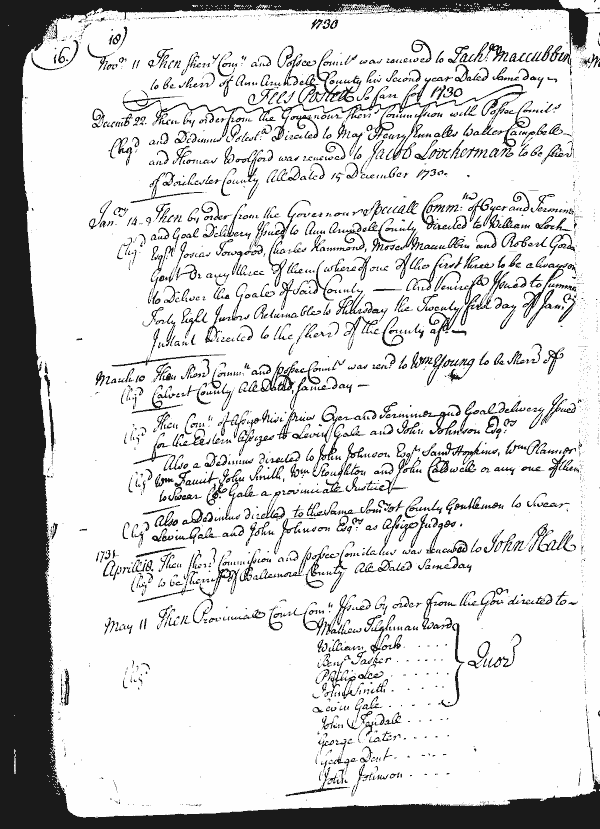 1730
16. 18
Nov.r 11 Then Sher.s Com.n and Possee Comit.s was renewed to Zach.a Maccubbin
to be Sherr of Ann Arundell County his Second year Dated Same day
Fees Posted So far for 1730
Decemb 22. Then by order from the Governour Sher.s Commission with Possee Comit.s
Chg.d and Dedimus Potest.s Directed to May Henry Ennalles Walter Campbell
and Thomas Woolford was renewed to Jacob Loockerman to be Sherr
of Dorchester County All Dated 15 December 1730.
Jan.ry 14 Then by order from the Governour Speciall Comm.n of Oyer and Terminer
Chg.d and Goal Delivery Issued to Ann Arundell County directed to William Lock
Esq.r Josias Towgood, Charles Hammond, Moses Maccubbin and Robert Gordon
Gent Or any three of them (whereof one of the first three to be always one
to deliver the Goale of Said County And Venires Issued to Summon
Forty Eight Jurors Returnable to Thursday the Twenty first day of Jan.ry
Instant Directed to the Sherr of the County afs.d
March 10 Then Sher.s Comm.n and possee Comit.s was ren.d to W.m Young to be Sherr of
Chg.d Calvert County All Dated Same day
Chg.d Then Com.n of Assize Nisi prius Oyer and Terminer and Goal delivery Issued
for the Eastern Assizes to Levin Gale and John Johnson Esq.rs
Also a Dedimus directed to John Johnson Esq.r Sam.l Hopkins, W.m Planner
Chg.d W.m Fauit John Smith, W.m Stoughton and John Caldwell or any one of them
to Swear Gale a provinciale Justice
Also a Dedimus directed to the Same Som.rset County Gentlemen to Swear
Chg.d Levin Gale and John Johnson Esq.rs as Assize Judges.
1731
April 18. Then Sher.s Commission and possee Comitatus was renewed to John Hall
Chg.d to be Sherriff of Baltemore County All Dated Same day
May 11 Then Provincial Court Com.n Issued by order from the Gov.r directed to
Mathew Tilghman Ward
William Lock
Benj.a Tasker
Chg.d Philip Lee
John Smith
Levin Gale
Quor.m
John Rendall
George Plater
George Dent
John Johnson